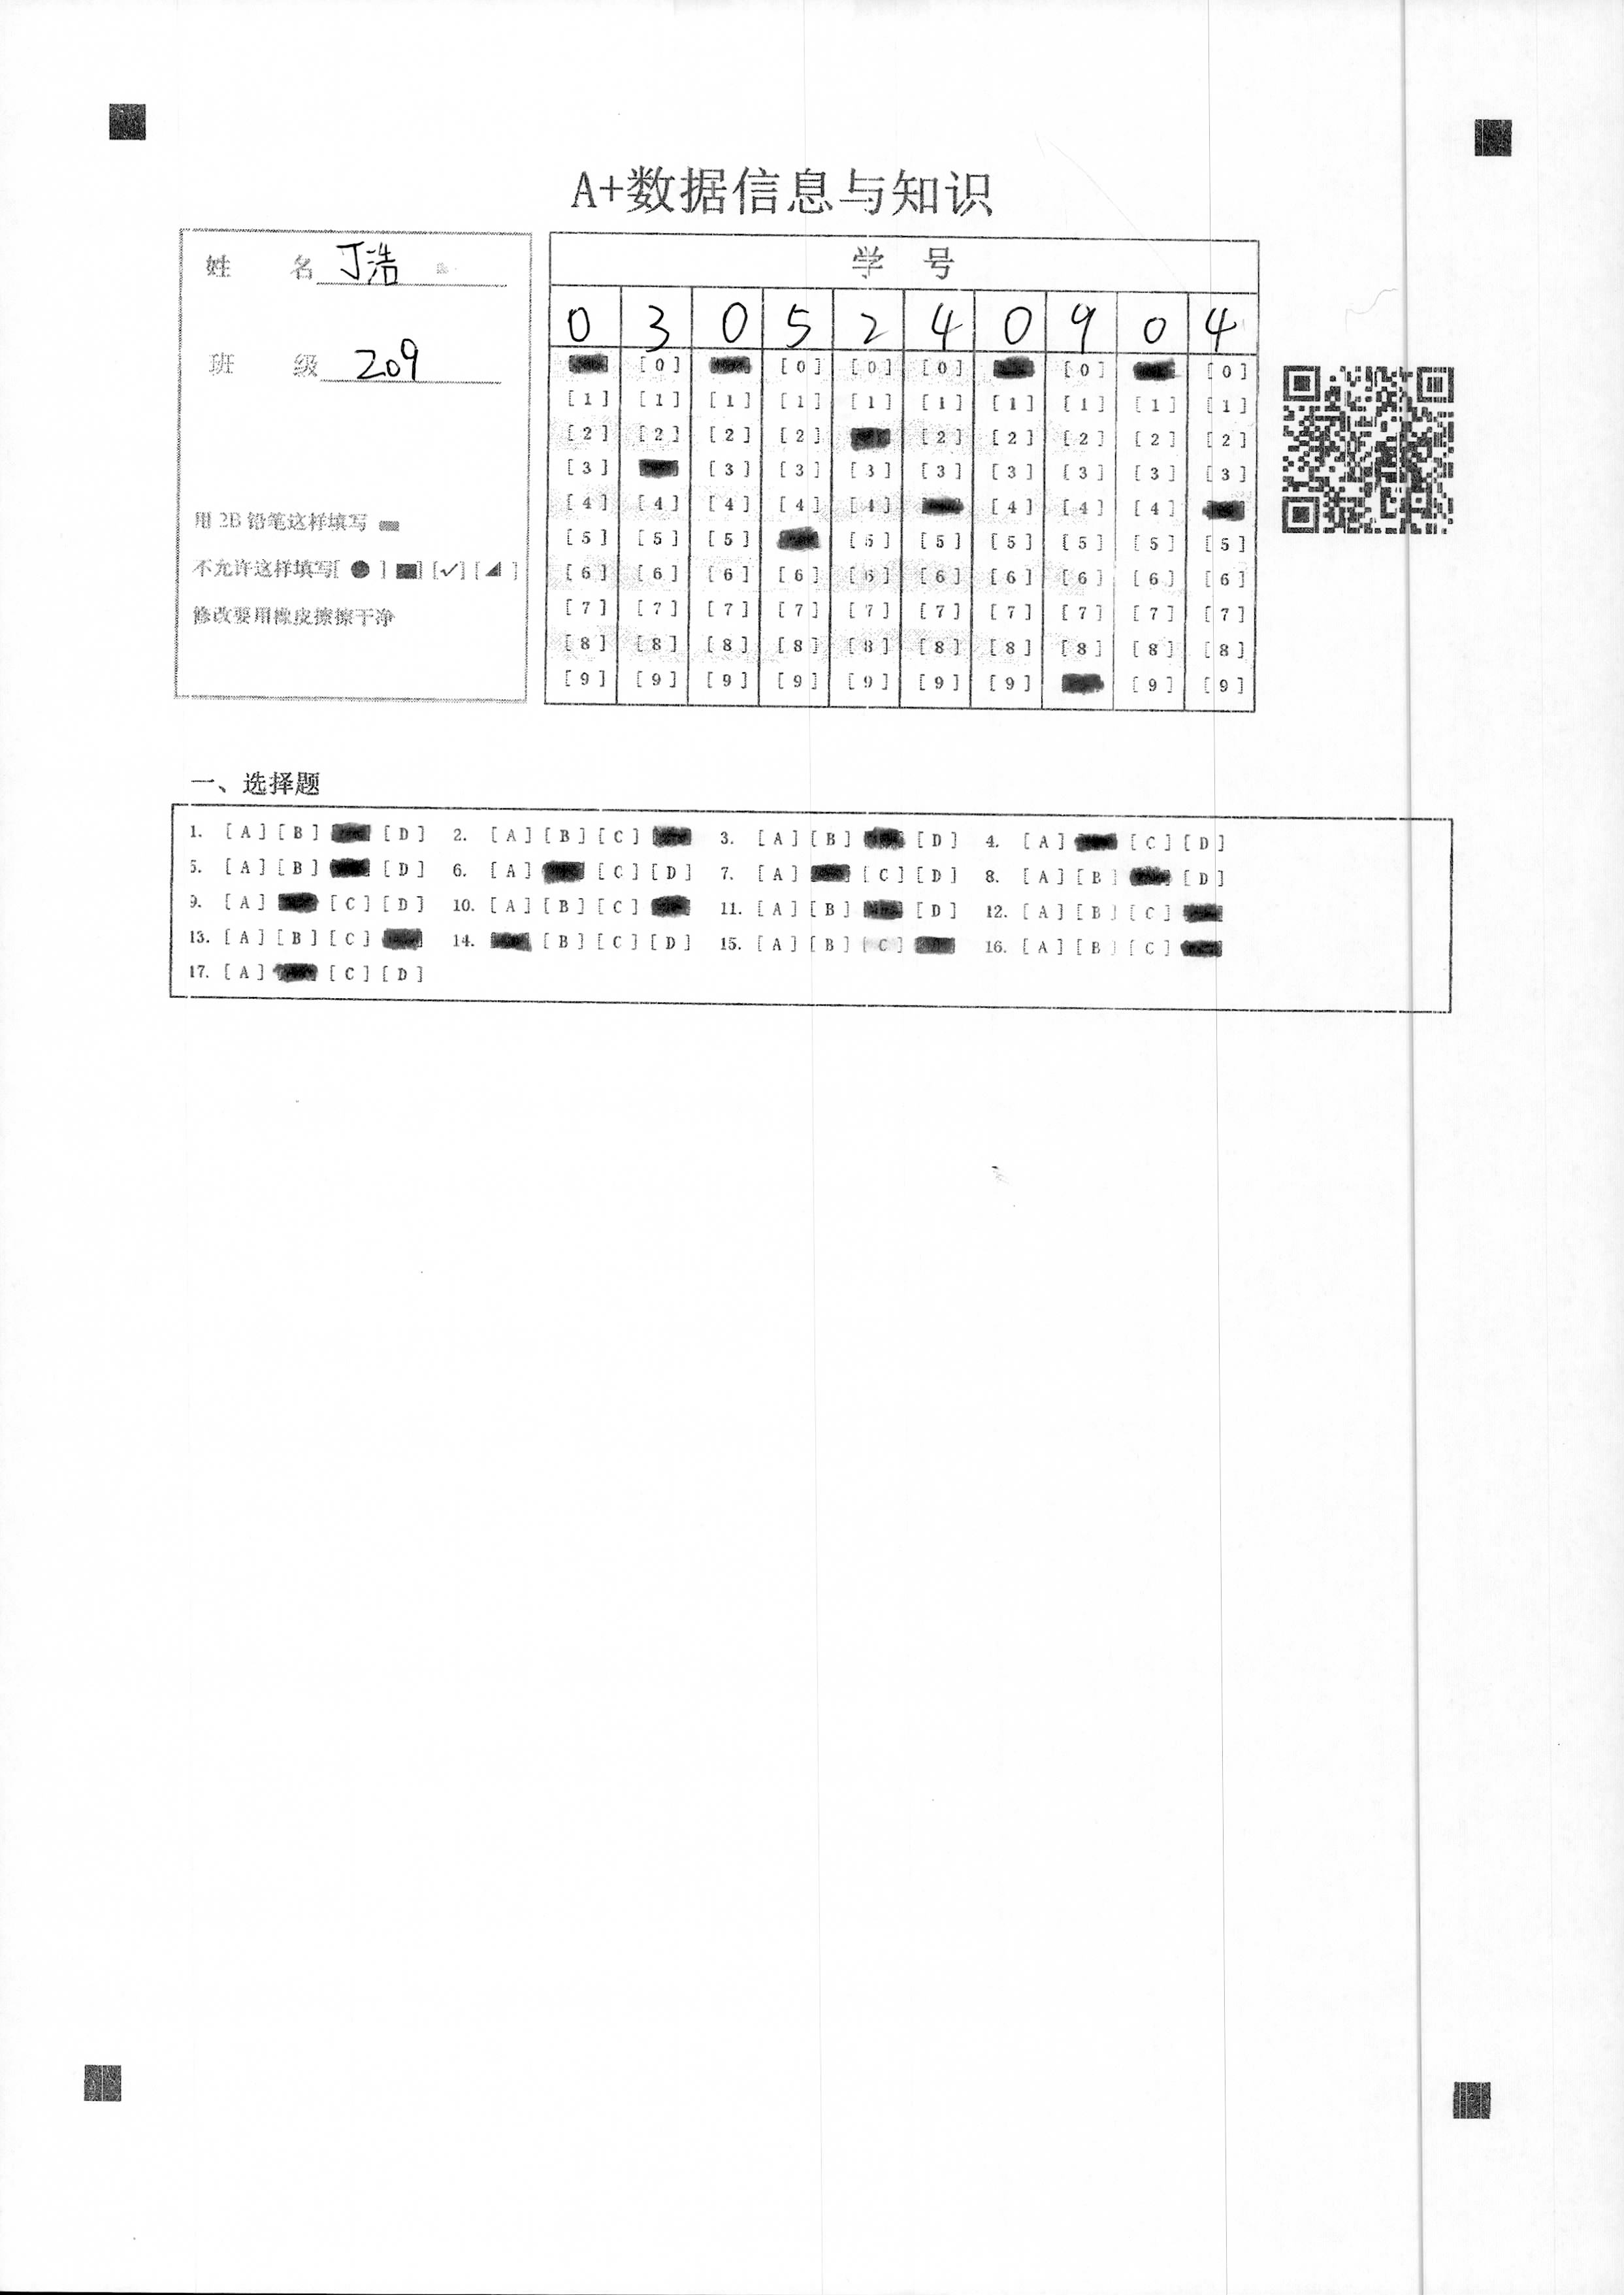 A+数据信息与知识
姓 名 丁浩
班 级 209
用 2B 铅笔这样填写
不允许这样填写[ ● ] [■] [✓] [◢ ]
修改要用橡皮擦擦干净
学 号
0 3 0 5 2 4 0 9 0 4
[0] [0] [0] [0] [0] [0]
[1] [1] [1] [1] [1] [1] [1] [1] [1] [1]
[2] [2] [2] [2] [2] [2] [2] [2] [2]
[3] [3] [3] [3] [3] [3] [3] [3] [3]
[4] [4] [4] [4] [4] [4] [4] [4]
[5] [5] [5] [5] [5] [5] [5] [5] [5]
[6] [6] [6] [6] [6] [6] [6] [6] [6] [6]
[7] [7] [7] [7] [7] [7] [7] [7] [7] [7]
[8] [8] [8] [8] [8] [8] [8] [8] [8] [8]
[9] [9] [9] [9] [9] [9] [9] [9] [9]
一、选择题
1. [A] [B] [D] 2. [A] [B] [C] 3. [A] [B] [D] 4. [A] [C] [D]
5. [A] [B] [D] 6. [A] [C] [D] 7. [A] [C] [D] 8. [A] [B] [D]
9. [A] [C] [D] 10. [A] [B] [C] 11. [A] [B] [D] 12. [A] [B] [C]
13. [A] [B] [C] 14. [B] [C] [D] 15. [A] [B] [C] 16. [A] [B] [C]
17. [A] [C] [D]